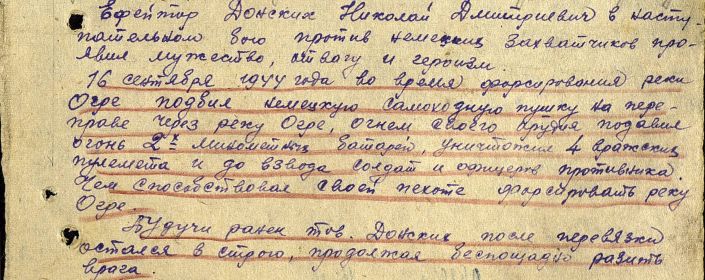 Ефрейтор Донских Николай Дмитриевич в насту-
пательном бою против немецких захватчиков про-
явил мужество, отвагу и героизм.
16 сентября 1944 года во время форсирования реки
Огре подбил немецкую самоходную пушку на пере-
праве через реку Огре, огнем своего орудия подавил
огонь 2х минометных батарей, уничтожил 4 вражских
пулемета и до взвода солдат и офицеров противника.
Чем способствовал своей пехоте форсировать реку
Огре.
Будучи ранен тов. Донских после перевязки
остался в строю, продолжая беспощадно разить
врага.